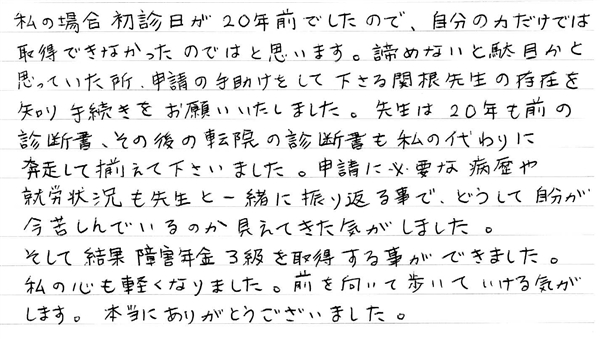 私の場合 初診日が 20年前でしたので、自分の力だけでは
取得できなかったのではと思います。諦めないと駄目かと
思っていた所、申請の手助けをして下さる関根先生の存在を
知り 手続きをお願いいたしました。先生は 20年も前の
診断書、その後の転院の診断書も私の代わりに
奔走して揃えて下さいました。申請に必要な 病歴や
就労状況も先生と一緒に振り返る事で、どうして自分が
今苦しんでいるのか見えてきた気がしました。
そして 結果 障害年金 3級を取得する事ができました。
私の心も軽くなりました。前を向いて歩いていける気が
します。 本当にありがとうございました。